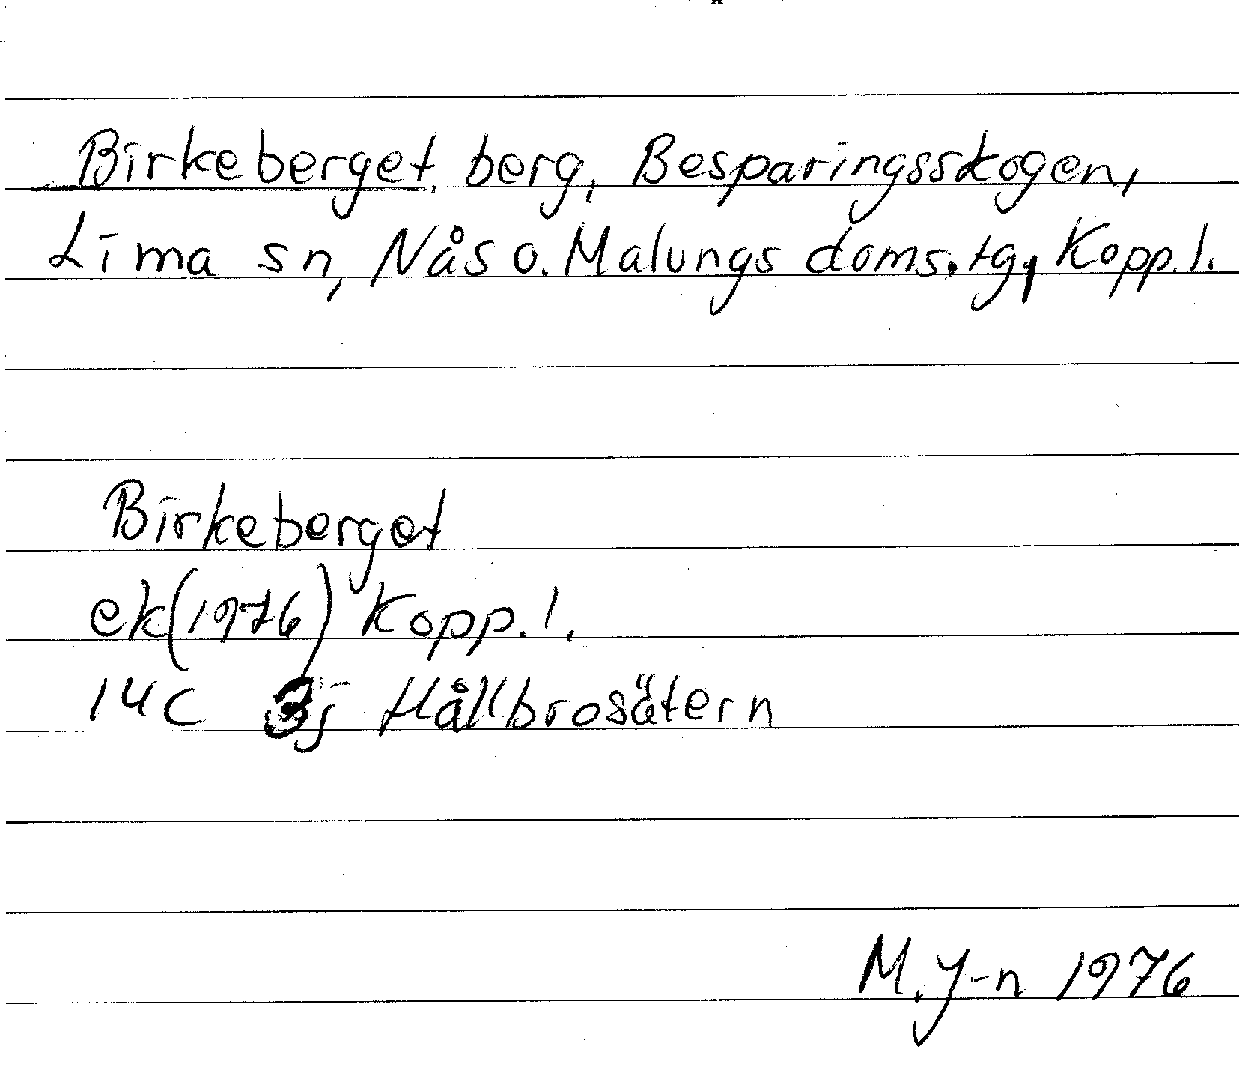 Birkeberget, berg, Besparingsskogen,
Lima sn, Nås o. Malungs doms.tg, Kopp. l.
Birkeberget
ek (1976) Kopp. l.
14C 3j Hållbrosätern
M. J-n 1976